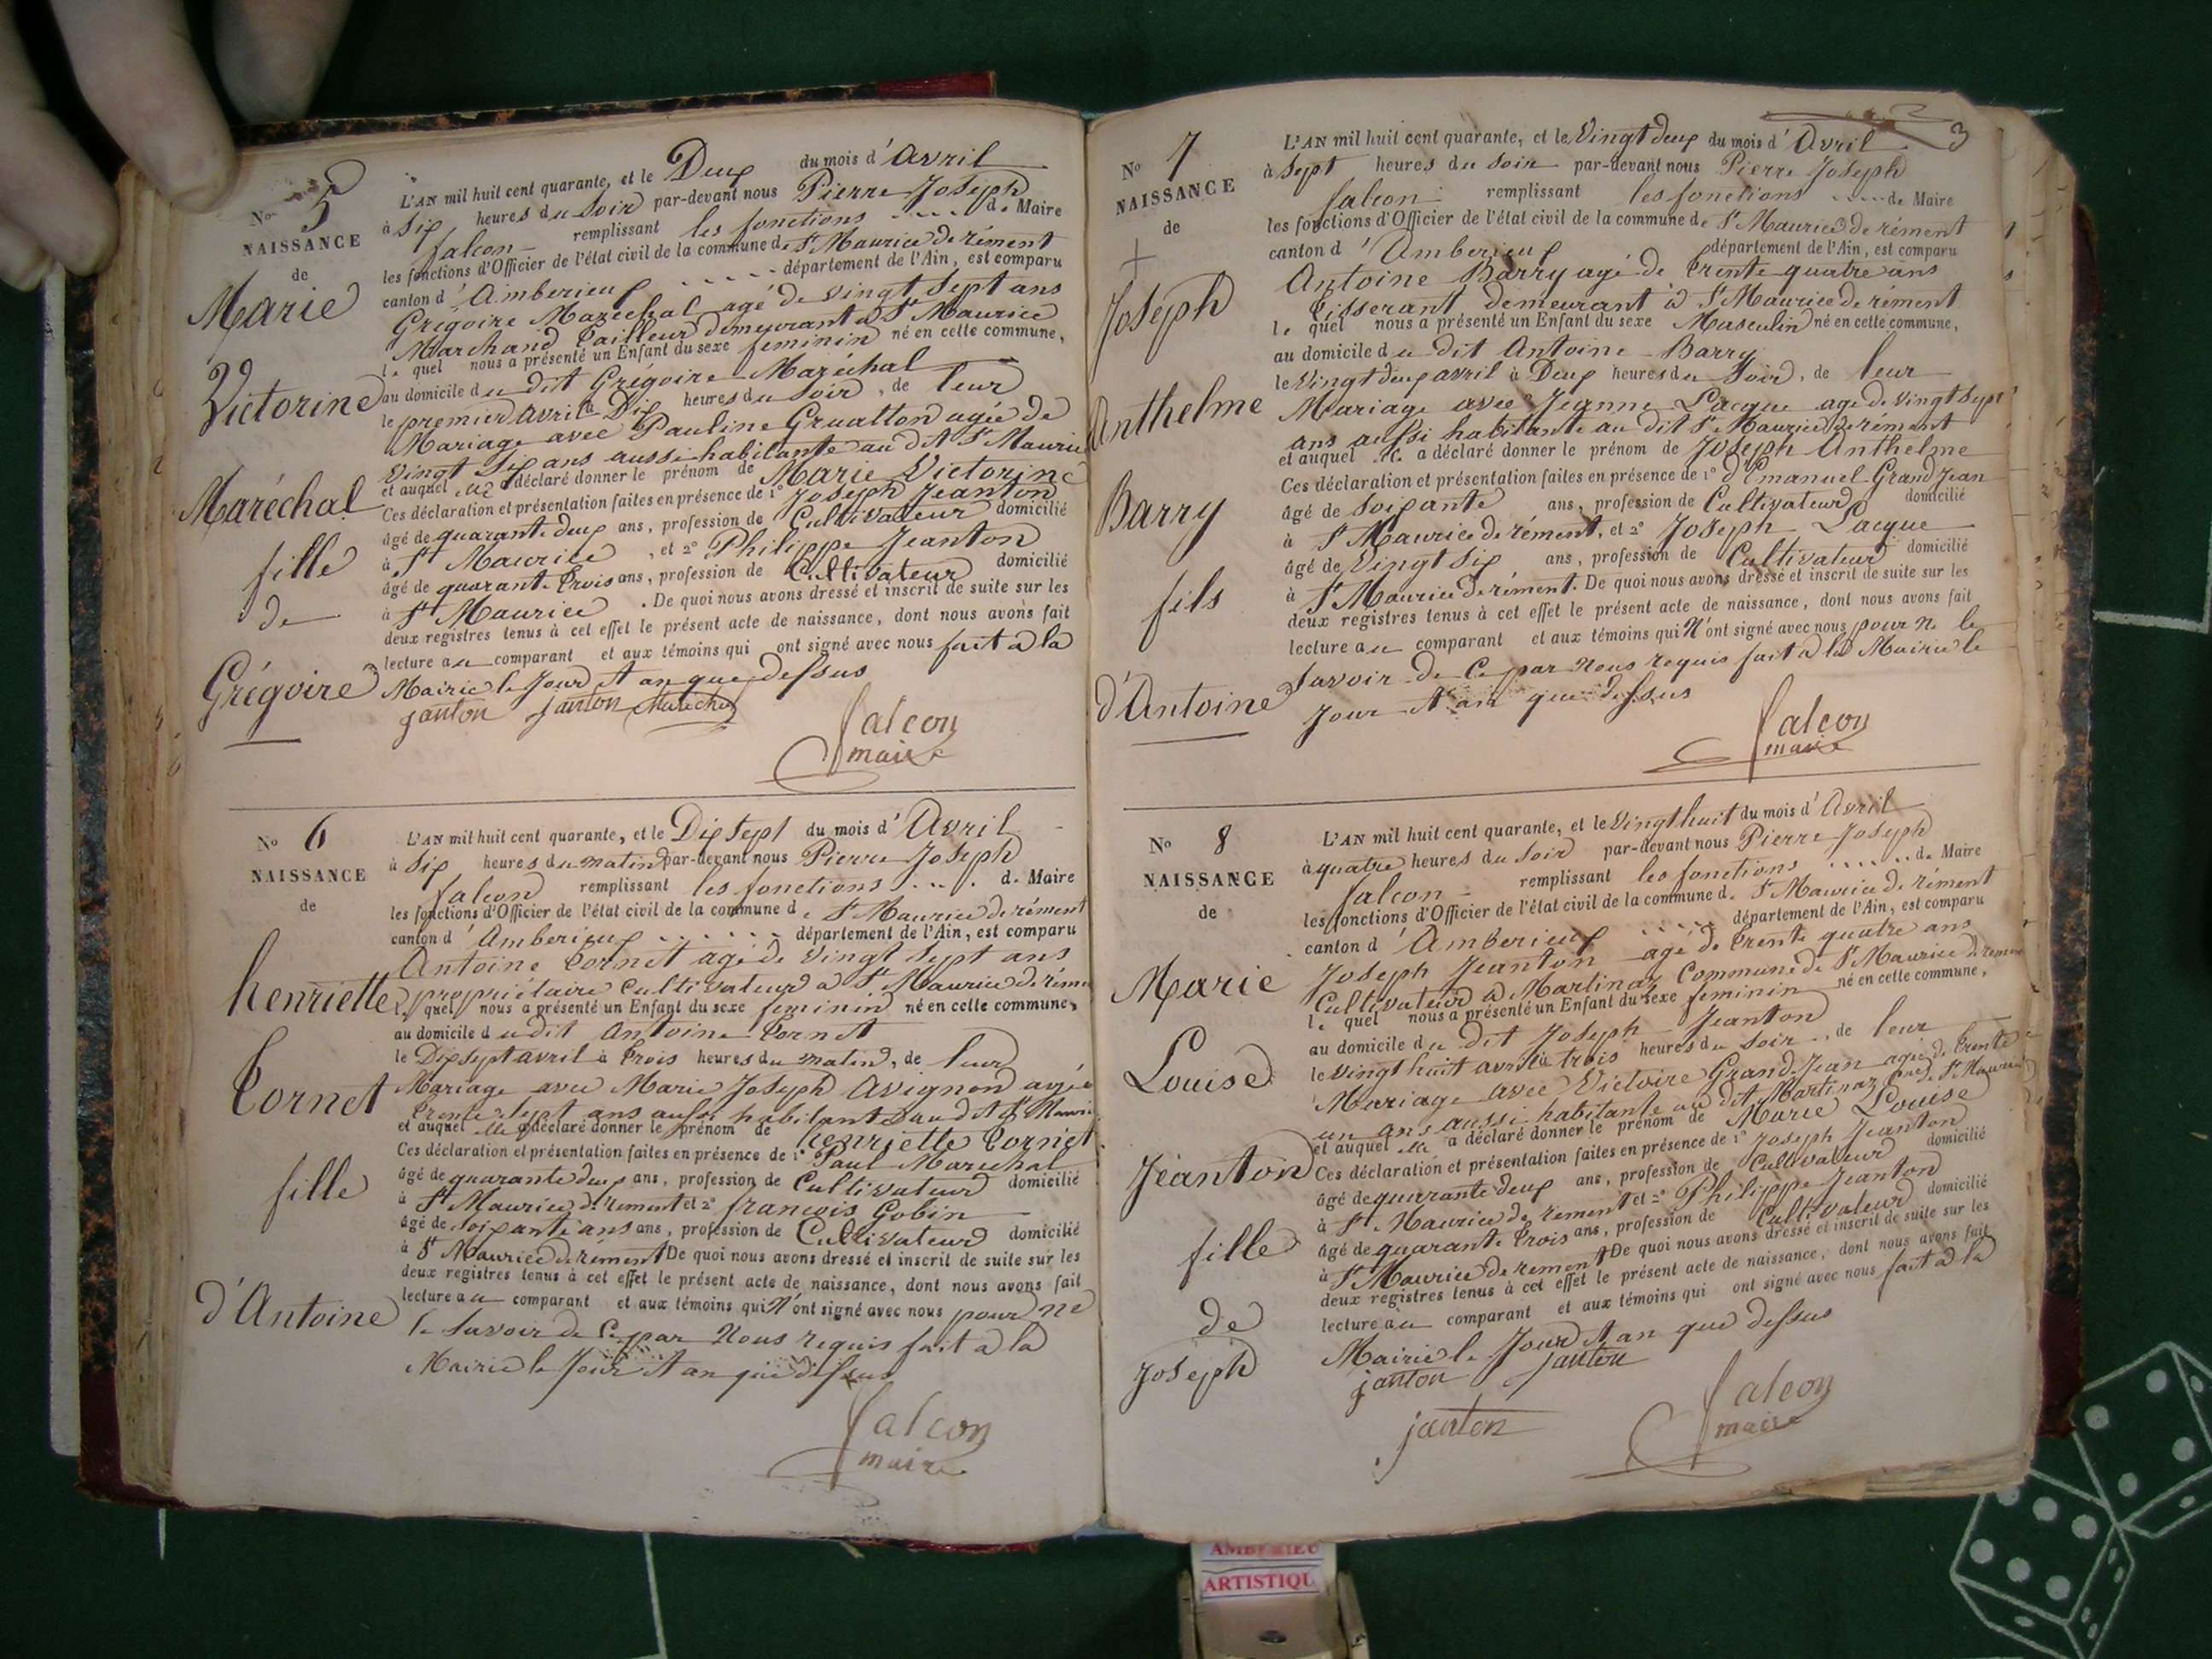 No 5
NAISSANCE
de
Marie
Victorine
Maréchal
fille
de
Grégoire
L'AN mil huit cent quarante, et le Deux du mois d'Avril
à Six heures du Soir par-devant nous Pierre Joseph
falcon remplissant les fonctions .... de Maire
les fonctions d'Officier de l'état civil de la commune de St Maurice de rément
canton d'Amberieux .... département de l'Ain, est comparu
Grégoire Marechal agé de vingt Sept ans
Marchand Tailleur demeurant à St Maurice
le quel nous a présenté un Enfant du sexe feminin né en cette commune,
au domicile du dit Grégoire Maréchal
le premier avril à Dix heures du Soir, de leur
Mariage avec Pauline agée de
Vingt Six ans aussi habitante au dit St Maurice
et auquel a déclaré donner le prénom de Marie Victorine
Ces déclaration et présentation faites en présence de 1° Joseph Jeanton
âgé de quarante deux ans, profession de Cultivateur domicilié
à St Maurice, et 2° Philippe Jeanton
âgé de quarante trois ans, profession de Cultivateur domicilié
à St Maurice. De quoi nous avons dressé et inscrit de suite sur les
deux registres tenus à cet effet le présent acte de naissance, dont nous avons fait
lecture au comparant et aux témoins qui ont signé avec nous fait à la
Mairie le Jour et an que dessus
janton janton Marechal
falcon
maire
No 6
NAISSANCE
de
henriette
Cornet
fille
d'Antoine
L'AN mil huit cent quarante, et le Dix Sept du mois d'Avril
à Six heures du matin par-devant nous Pierre Joseph
falcon remplissant les fonctions .... de Maire
les fonctions d'Officier de l'état civil de la commune de St Maurice de rément
canton d'Amberieux ...... département de l'Ain, est comparu
Antoine Cornet agé de Vingt Sept ans
propriétaire Cultivateur à St Maurice de réme
le quel nous a présenté un Enfant du sexe feminin né en cette commune,
au domicile du dit Antoine Cornet
le Dix sept avril à trois heures du matin, de leur
Mariage avec Marie Joseph Avignon agée
trente Sept ans aussi habitante au dit St Mauri
et auquel a déclaré donner le prénom de henriette Cornet
Ces déclaration et présentation faites en présence de 1° Paul Marechal
âgé de quarante deux ans, profession de Cultivateur domicilié
à St Maurice de rement et 2° françois Gobin
âgé de Soixante ans ans, profession de Cultivateur domicilié
à St Maurice de rement De quoi nous avons dressé et inscrit de suite sur les
deux registres tenus à cet effet le présent acte de naissance, dont nous avons fait
lecture au comparant et aux témoins qui N'ont signé avec nous pour ne
le Savoir de Ce par Nous requis fait à la
Mairie le Jour et an que dessus
falcon
maire
3
No 7
NAISSANCE
de
+
Joseph
Anthelme
Barry
fils
d'Antoine
L'AN mil huit cent quarante, et le Vingt deux du mois d'Avril
à Sept heures du Soir par-devant nous Pierre Joseph
falcon remplissant les fonctions .... de Maire
les fonctions d'Officier de l'état civil de la commune de St Maurice de rément
canton d'Amberieux département de l'Ain, est comparu
Antoine Barry agé de trente quatre ans
Tisserant demeurant à St Maurice de rément
le quel nous a présenté un Enfant du sexe Masculin né en cette commune,
au domicile du dit Antoine Barry
le Vingt deux avril à Deux heures du Soir, de leur
Mariage avec Jeanne Lacque age de vingt Sept
ans aussi habitante au dit St Maurice de rément
et auquel a déclaré donner le prénom de Joseph Anthelme
Ces déclaration et présentation faites en présence de 1° d'Emanuel Grand Jean
âgé de Soixante ans, profession de Cultivateur domicilié
à St Maurice de rément, et 2° Joseph Lacque
âgé de Vingt Six ans, profession de Cultivateur domicilié
à St Maurice de rément. De quoi nous avons dressé et inscrit de suite sur les
deux registres tenus à cet effet le présent acte de naissance, dont nous avons fait
lecture au comparant et aux témoins qui N'ont signé avec nous pour ne le
Savoir de Ce par Nous requis fait à la Mairie le
Jour et an que dessus
falcon
maire
No 8
NAISSANCE
de
Marie
Louise
Jeanton
fille
de
Joseph
L'AN mil huit cent quarante, et le Vingt huit du mois d'Avril
à quatre heures du Soir par-devant nous Pierre Joseph
falcon remplissant les fonctions ...... de Maire
les fonctions d'Officier de l'état civil de la commune de St Maurice de rément
canton d'Amberieux ..... département de l'Ain, est comparu
Joseph Jeanton agé de trente quatre ans
Cultivateur à Martinaz Commune de St Maurice de remen
le quel nous a présenté un Enfant du sexe feminin né en cette commune,
au domicile du dit Joseph Jeanton
le vingt huit avril à trois heures du Soir, de leur
Mariage avec Victoire Grand Jean agée de trente
un ans aussi habitante au dit Martinaz de St Maurice
et auquel a déclaré donner le prénom de Marie Louise
Ces déclaration et présentation faites en présence de 1° Joseph Jeanton
âgé de quarante deux ans, profession de Cultivateur domicilié
à St Maurice de rement et 2° Philippe Jeanton
âgé de quarante trois ans, profession de Cultivateur domicilié
à St Maurice de rement De quoi nous avons dressé et inscrit de suite sur les
deux registres tenus à cet effet le présent acte de naissance, dont nous avons fait
lecture au comparant et aux témoins qui ont signé avec nous fait à la
Mairie le Jour et an que dessus
janton janton
janton
falcon
maire
AMBERIEU
ARTISTIQU